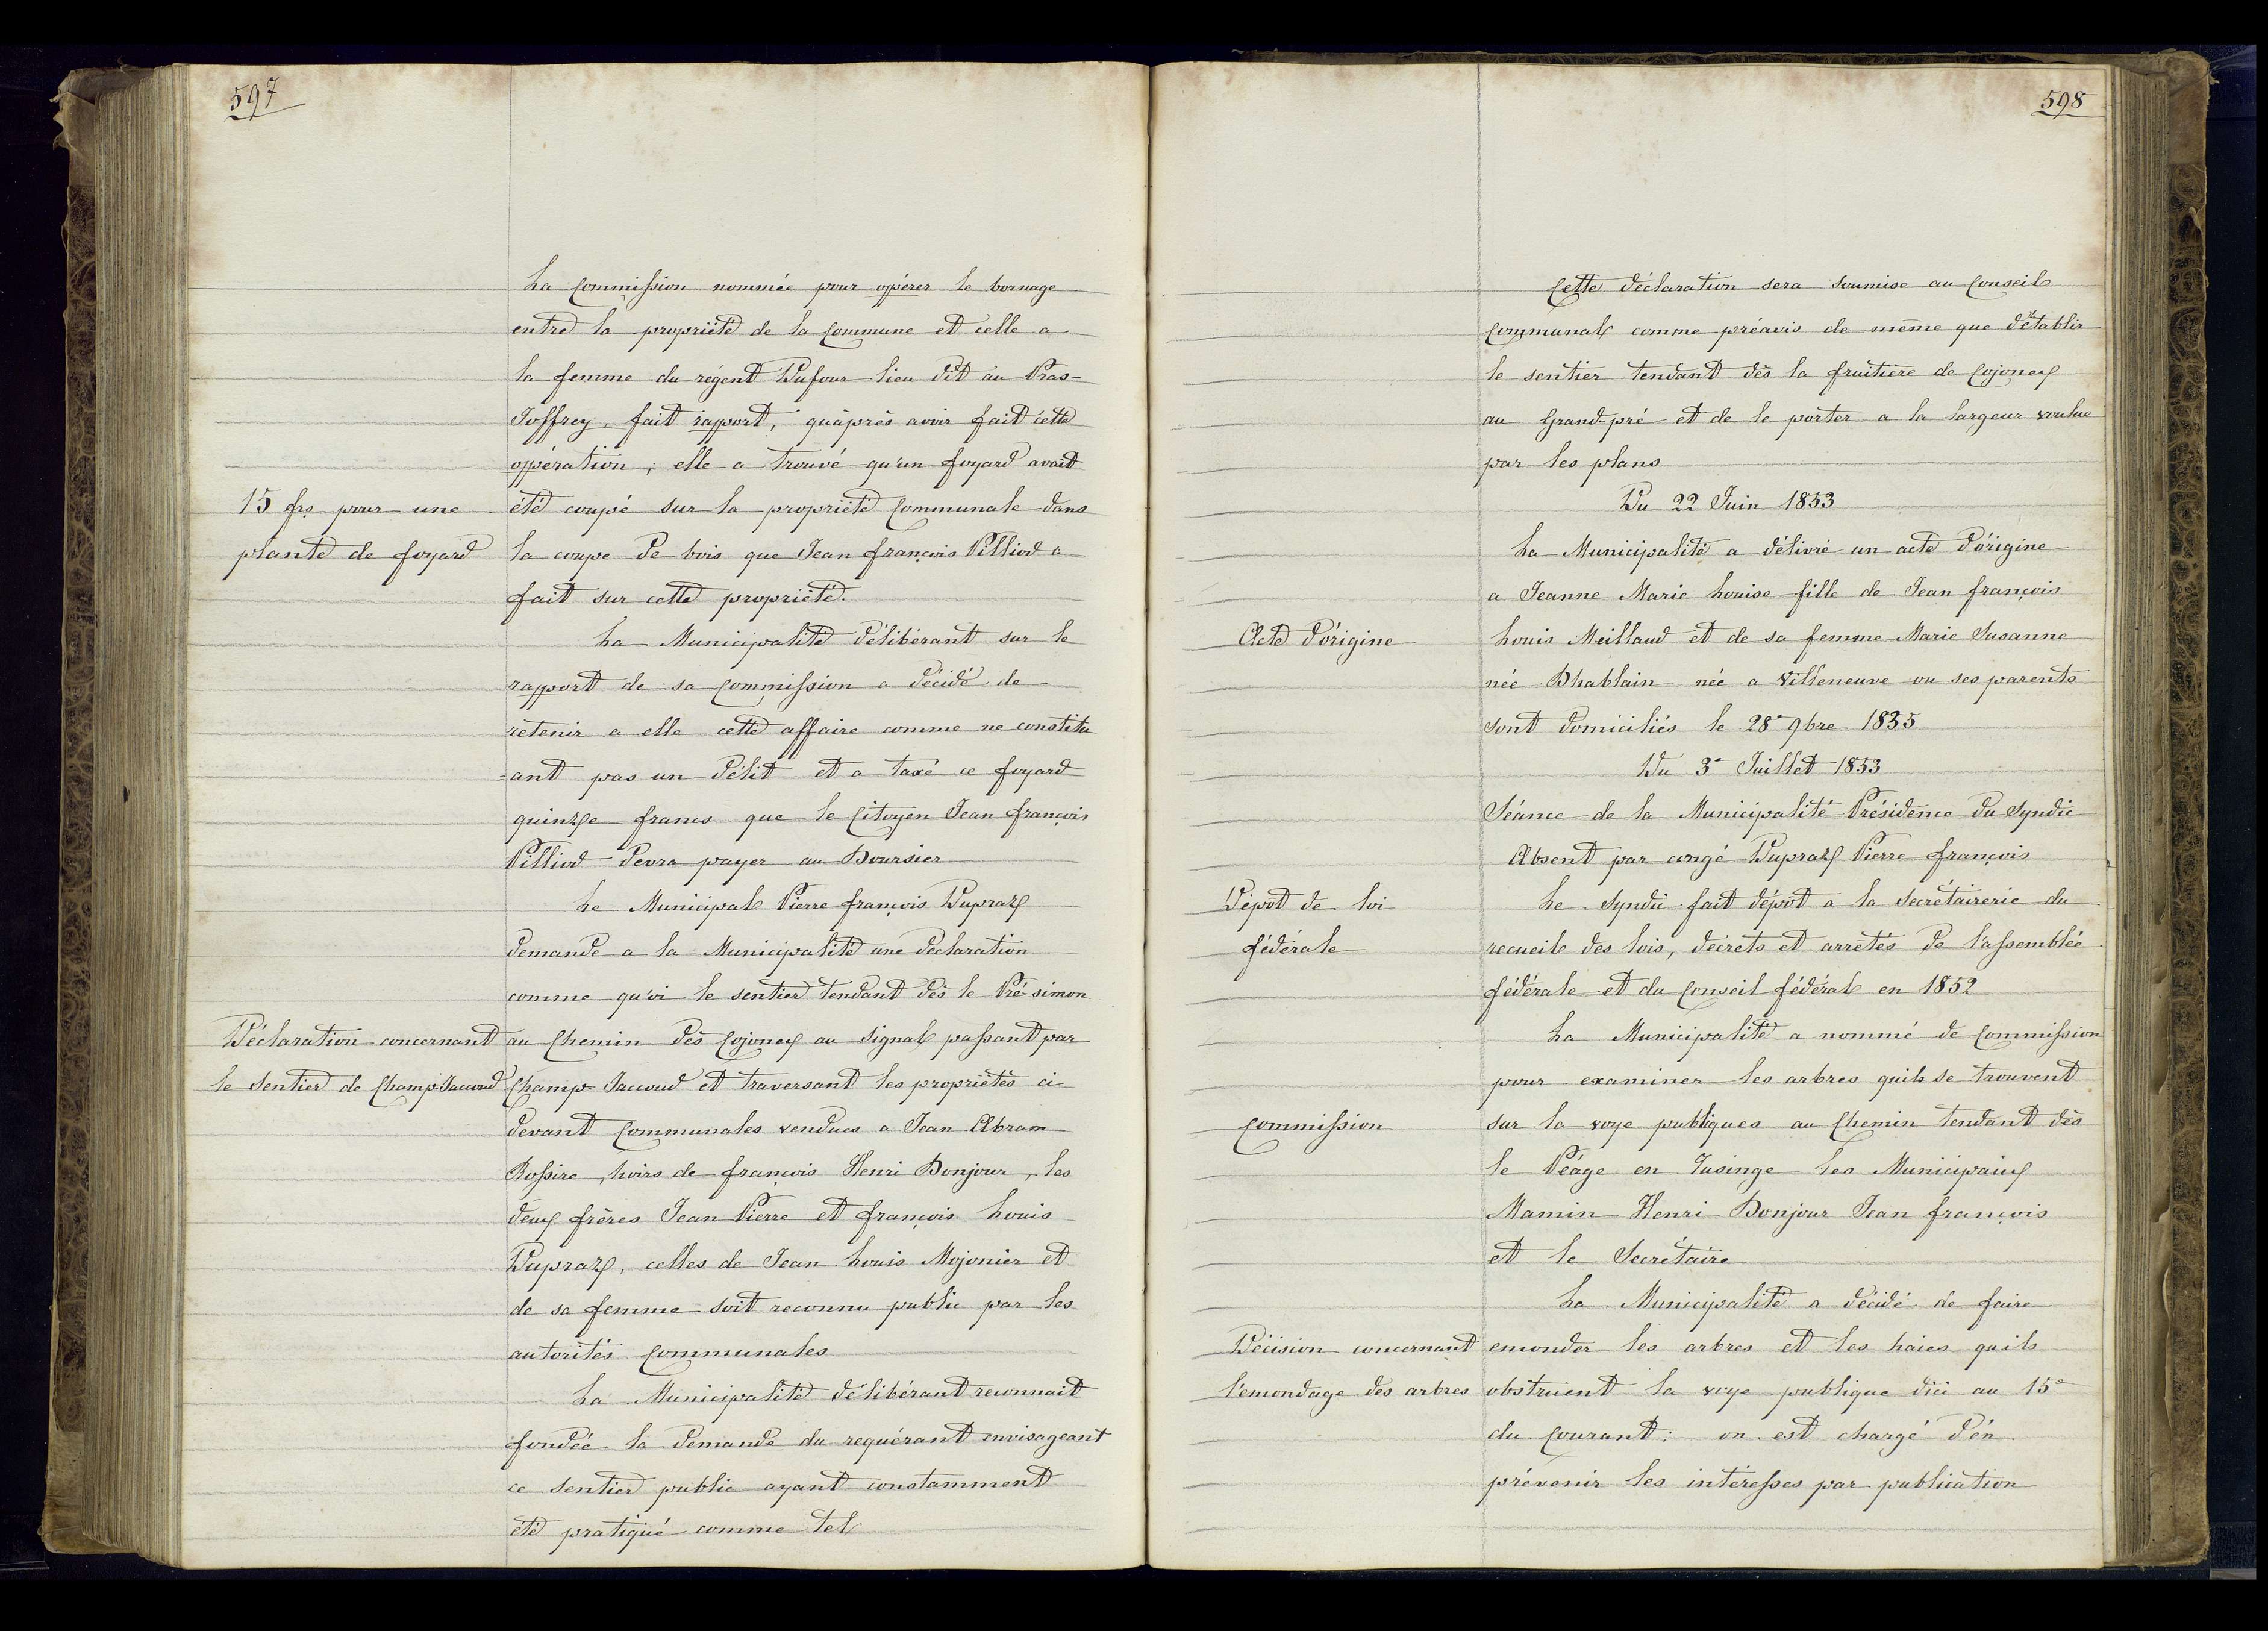 597
La Commission nommée pour opérer le bornage
entre la propriété de la Commune et celle a
la femme du régent Dufour lieu dit au Pras-
Joffrey, fait rapport, qu'après avoir fait cette
oppération, elle a trouvé qu'un foyard avait
15 frs pour une
plante de foyard
été coupé sur la propriété Communale dans
la coupe de bois que Jean françois Pilliod a
fait sur cette propriété.
La Municipalité délibérant sur le
rapport de sa Commission a décidé de
retenir a elle cette affaire comme ne constitu
=ant pas un délit et a taxé ce foyard
quinze francs que le Citoyen Jean françois
Pilliod devra payer au Boursier
Le Municipal Pierre françois Dupraz
demande a la Municipalité une déclaration
comme qu'oi le sentier tendant dès le Pré-simon
Déclaration concernant
le Sentier de Champ-Jaccoud
au Chemin dès Cojonex au Signal passant par
Champ-Jaccoud et traversant les propriétés ci
devant Communales vendues a Jean Abram
Rossire, hoirs de françois Henri Bonjour, les
deux frères Jean Pierre et françois Louis
Dupraz, celles de Jean Louis Mojonier et
de sa femme soit reconnu public par les
autorités Communales
La Municipalité délibérant reconnait
fondée la demande du requérant envisageant
ce sentier public ayant constamment
été pratiqué comme tel
598
Cette déclaration sera soumise au Conseil
Communal comme préavis de même que d'établir
le sentier tendant dès la fruitière de Cojonex
au Grand-pré et de le porter a la largeur voulue
par les plans
Du 22 Juin 1853
La Municipalité a délivré un acte d'origine
a Jeanne Marie Louise fille de Jean françois
Acte d'origine
Louis Meillaud et de sa femme Marie Susanne
née Dhablain née a Villeneuve ou ses parents
sont domiciliés le 28e 9bre 1835
Du 3e Juillet 1853
Séance de la Municipalité Présidence du Syndic
Absent par congé Dupraz Pierre françois
Dépôt de loi
fédérale
Le Syndic fait dépôt a la Secrétairerie du
recueil des lois, décrets et arretés de l'assemblée
fédérale et du Conseil fédéral en 1852
La Municipalité a nommé de Commission
pour examiner les arbres quils se trouvent
Commission
sur la voye publiques au Chemin tendant dès
le Péage en Jusinge les Municipaux
Mamin Henri Bonjour Jean françois
et le Secrétaire
La Municipalité a décidé de faire
Décision concernant
l'emondage des arbres
emonder les arbres et les haies quils
obstruent la voye publique d'ici au 15e
du Courant: on est chargé d'en
prévenir les intéresses par publication